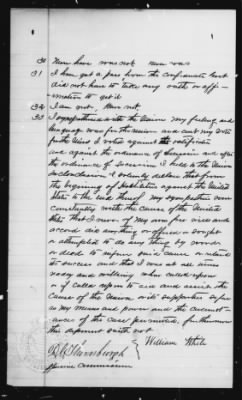 30 Never have was not. never was
31 I have got a pass from the confederate
did not have to take any oath or affir-
mation to get it
34 I am not. Never not
35 I sympathised with the Union My feeling and
language was for the union and cast my vote
for the Union I voted against the ratification
and against the ordinance of Secession and after
the ordinance of Secession I held to the Union
I solemnly declare that from
the begining of hostilities against the United
States to the end thereof my sympathies were
constantly with the cause of the United
States that I never of my own free will and
accord did anything or offered or sought
or attempted to do anything by word
or deed to injure said cause or retard
its success and that I was at all times
ready and willing when called upon
or if called upon to aid and assist the
Cause of the Union or its supporters so far
as my means and power and the circumst-
ances of the case permitted, further
this deponent saith not.
William
Commissioner